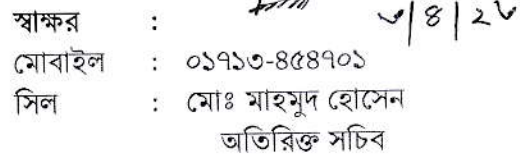 স্বাক্ষর : ৬/৪/২৬
মোবাইল : ০১৭১৩-৪৫৪৭০১
সিল : মোঃ মাহমুদ হোসেন
অতিরিক্ত সচিব